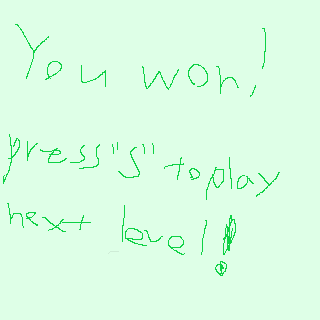 You won!
press "s" to play
next level!